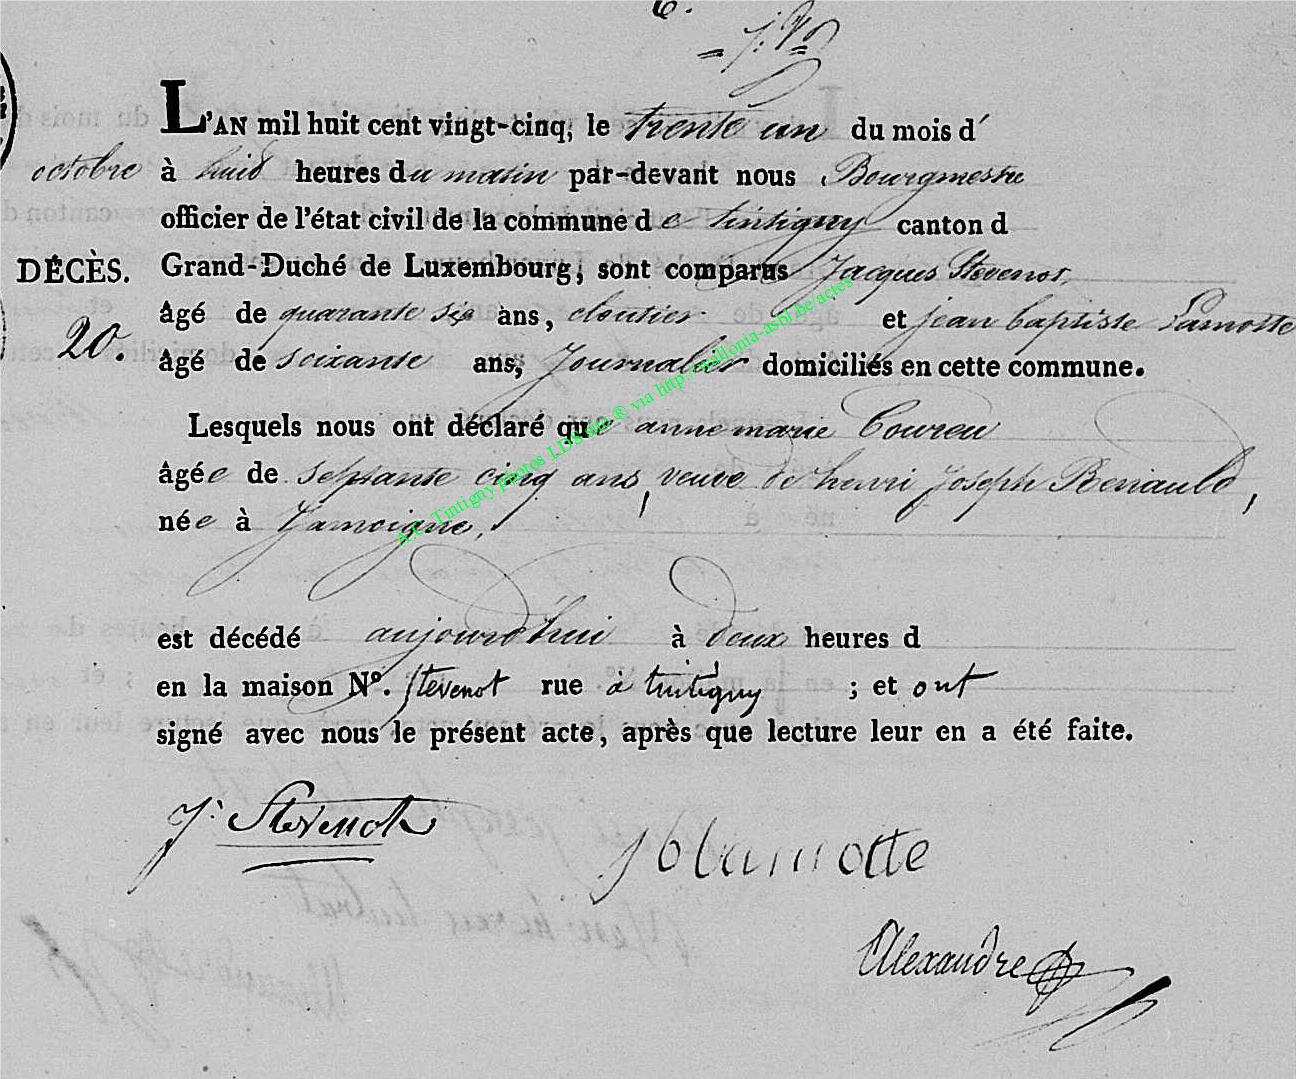 L'AN mil huit cent vingt-cinq, le trente un du mois d'
octobre à huid heures du matin par-devant nous Bourgmestre
officier de l'état civil de la commune de tintigny canton d
DÉCÈS. Grand-Duché de Luxembourg, sont comparus Jacques Stevenot,
âgé de quarante six ans, cloutier et jean baptiste Lamotte
20. âgé de soixante ans, Journalier domiciliés en cette commune.
Lesquels nous ont déclaré que anne marie Coureu
âgée de septante cinq ans, veuve de henri Joseph Renauld,
née à Jamoigne,
est décédé aujourd'hui à deux heures d
en la maison N°. Stevenot rue à tintigny ; et ont
signé avec nous le présent acte, après que lecture leur en a été faite.
J: Stevenot
J b lamotte
Alexandre
A.E. Tintigny photos LDS ® via http://wallonia-asbl.be/actes